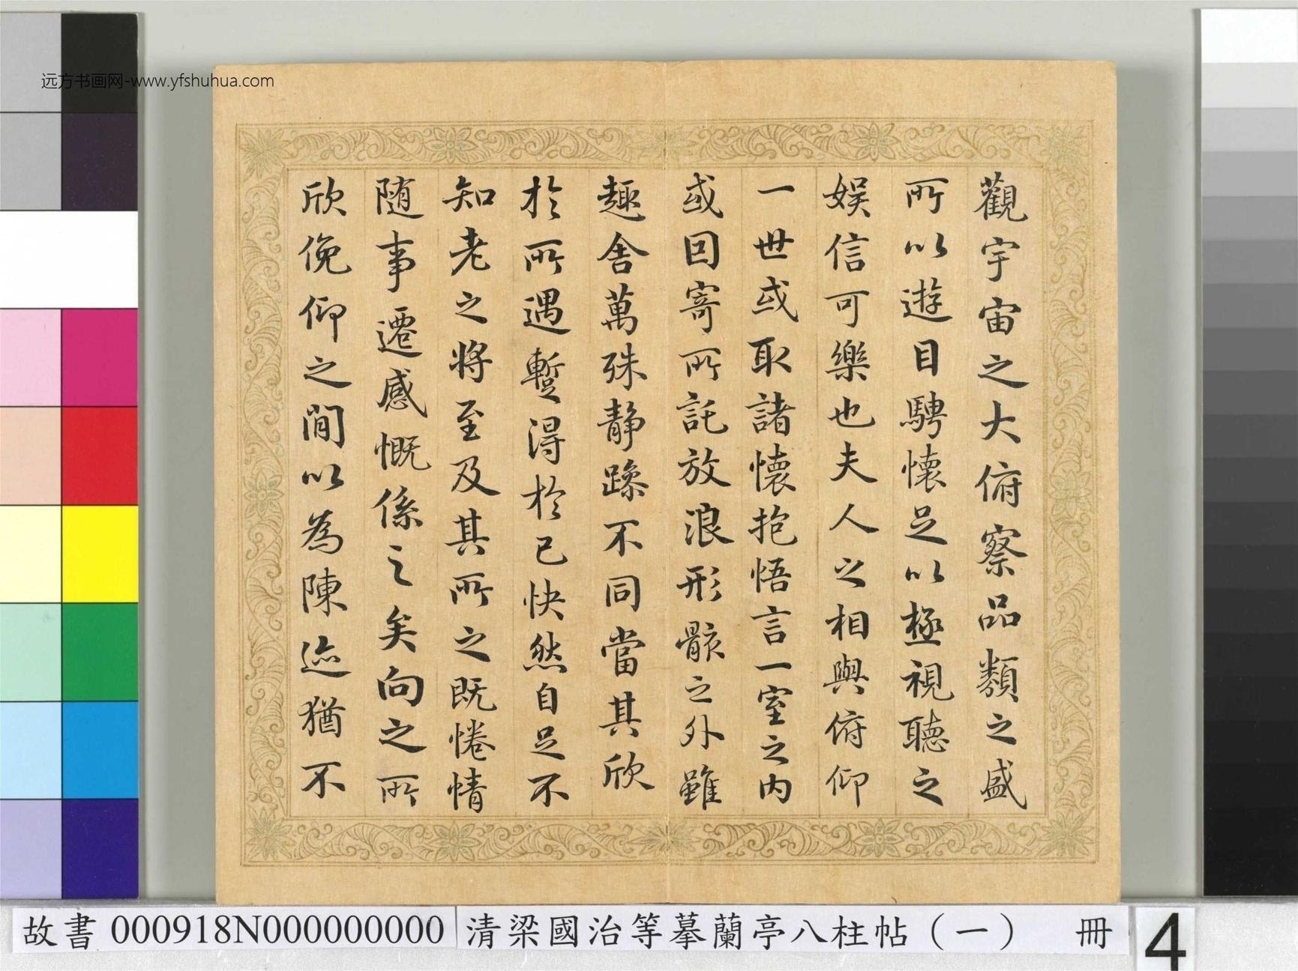 远方书画网-www.yfshuhua.com
觀宇宙之大俯察品類之盛
所以遊目騁懷足以極視聽之
娱信可樂也夫人之相與俯仰
一世或取諸懷抱悟言一室之内
或因寄所託放浪形骸之外雖
趣舎萬殊静躁不同當其欣
於所遇蹔得於己快然自足不
知老之將至及其所之既惓情
随事遷感慨係之矣向之所
欣俛仰之間以為陳迹猶不
故書 000918N000000000 清梁國治等摹蘭亭八柱帖（一） 冊 4